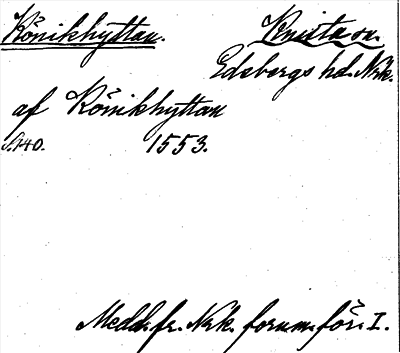 Könikhyttan. Knista sn.
Edsbergs hd. Nrk.
af Könikhyttan
S. 140. 1553.
Medd. fr. Nrk. fornm. för. I.